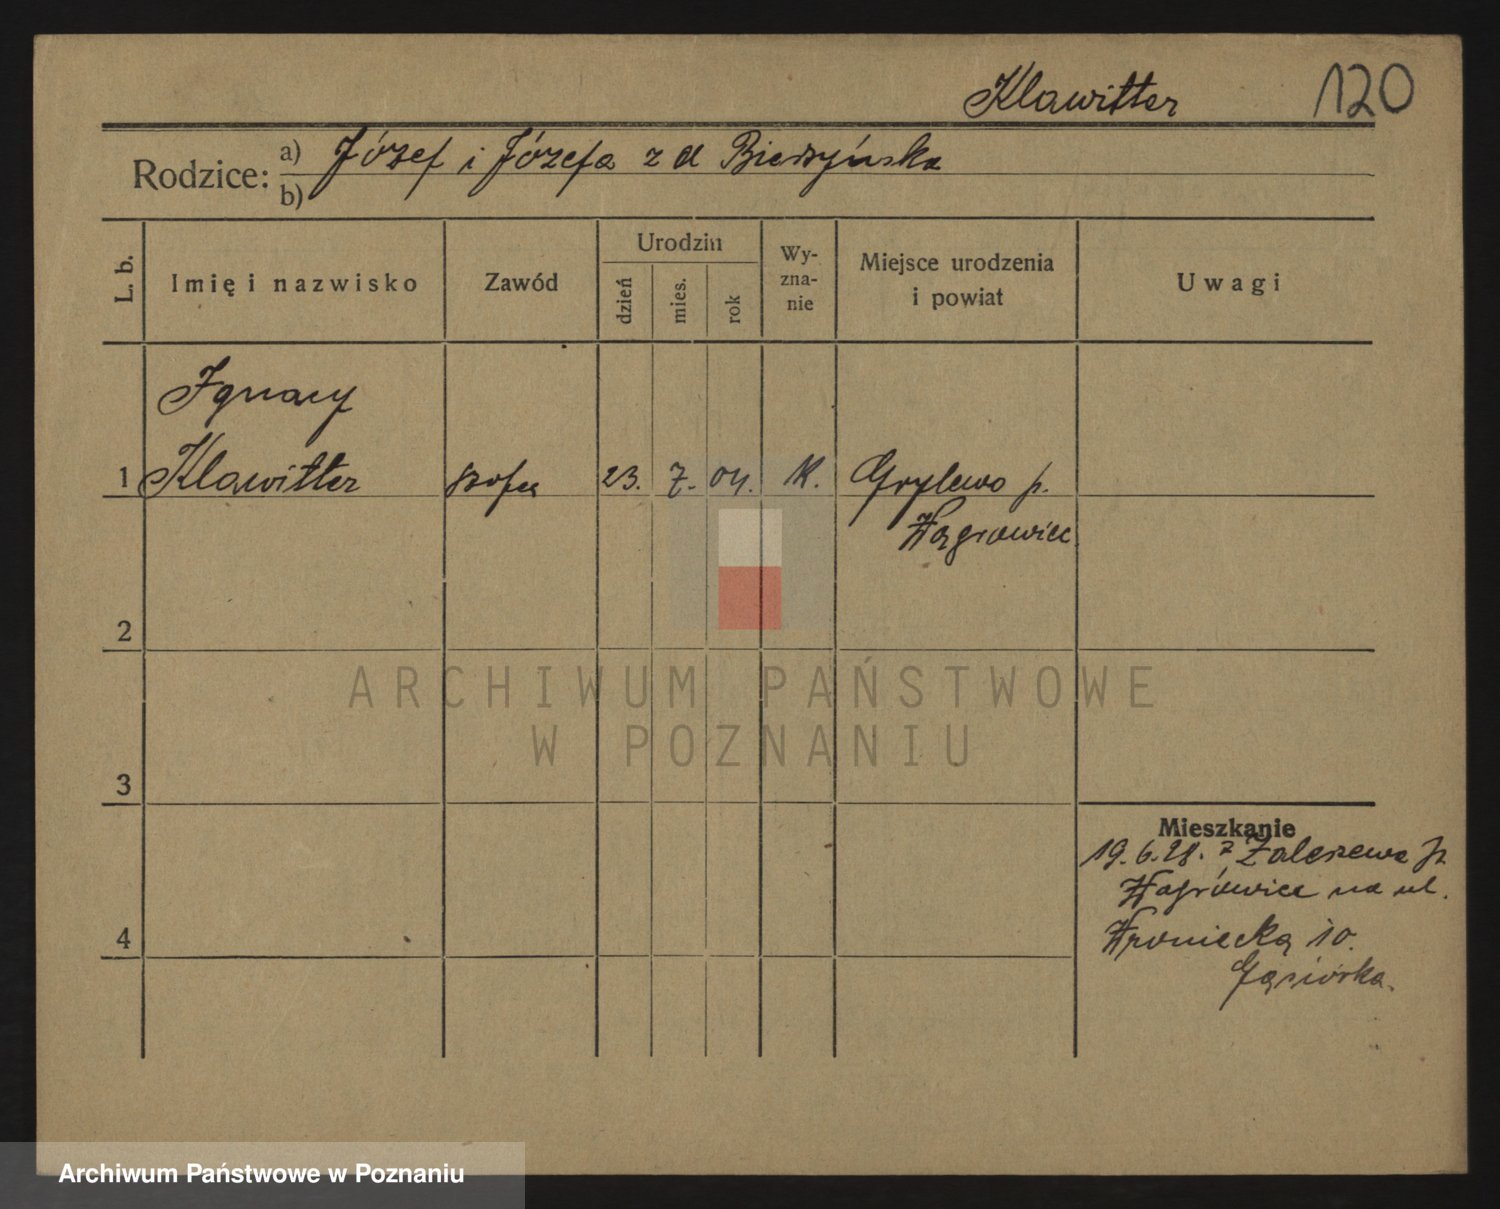 Klawitter 120
Rodzice: a) Józef i Józefa z d
b)
L. b.
Imię i nazwisko
Zawód
Urodzin
dzień
mies.
rok
Wy-
zna-
nie
Miejsce urodzenia
i powiat
Uwagi
Ignacy
1 Klawitter szofer 23. 7. 04. K. Grylewo p.
Wągrowiec
2
3
4
Mieszkanie
19.6.28. z Zaleszewa p
Wągrówiec na ul.
Wroniecką 10.
Gąsiorka.
ARCHIWUM PAŃSTWOWE
W POZNANIU
Archiwum Państwowe w Poznaniu